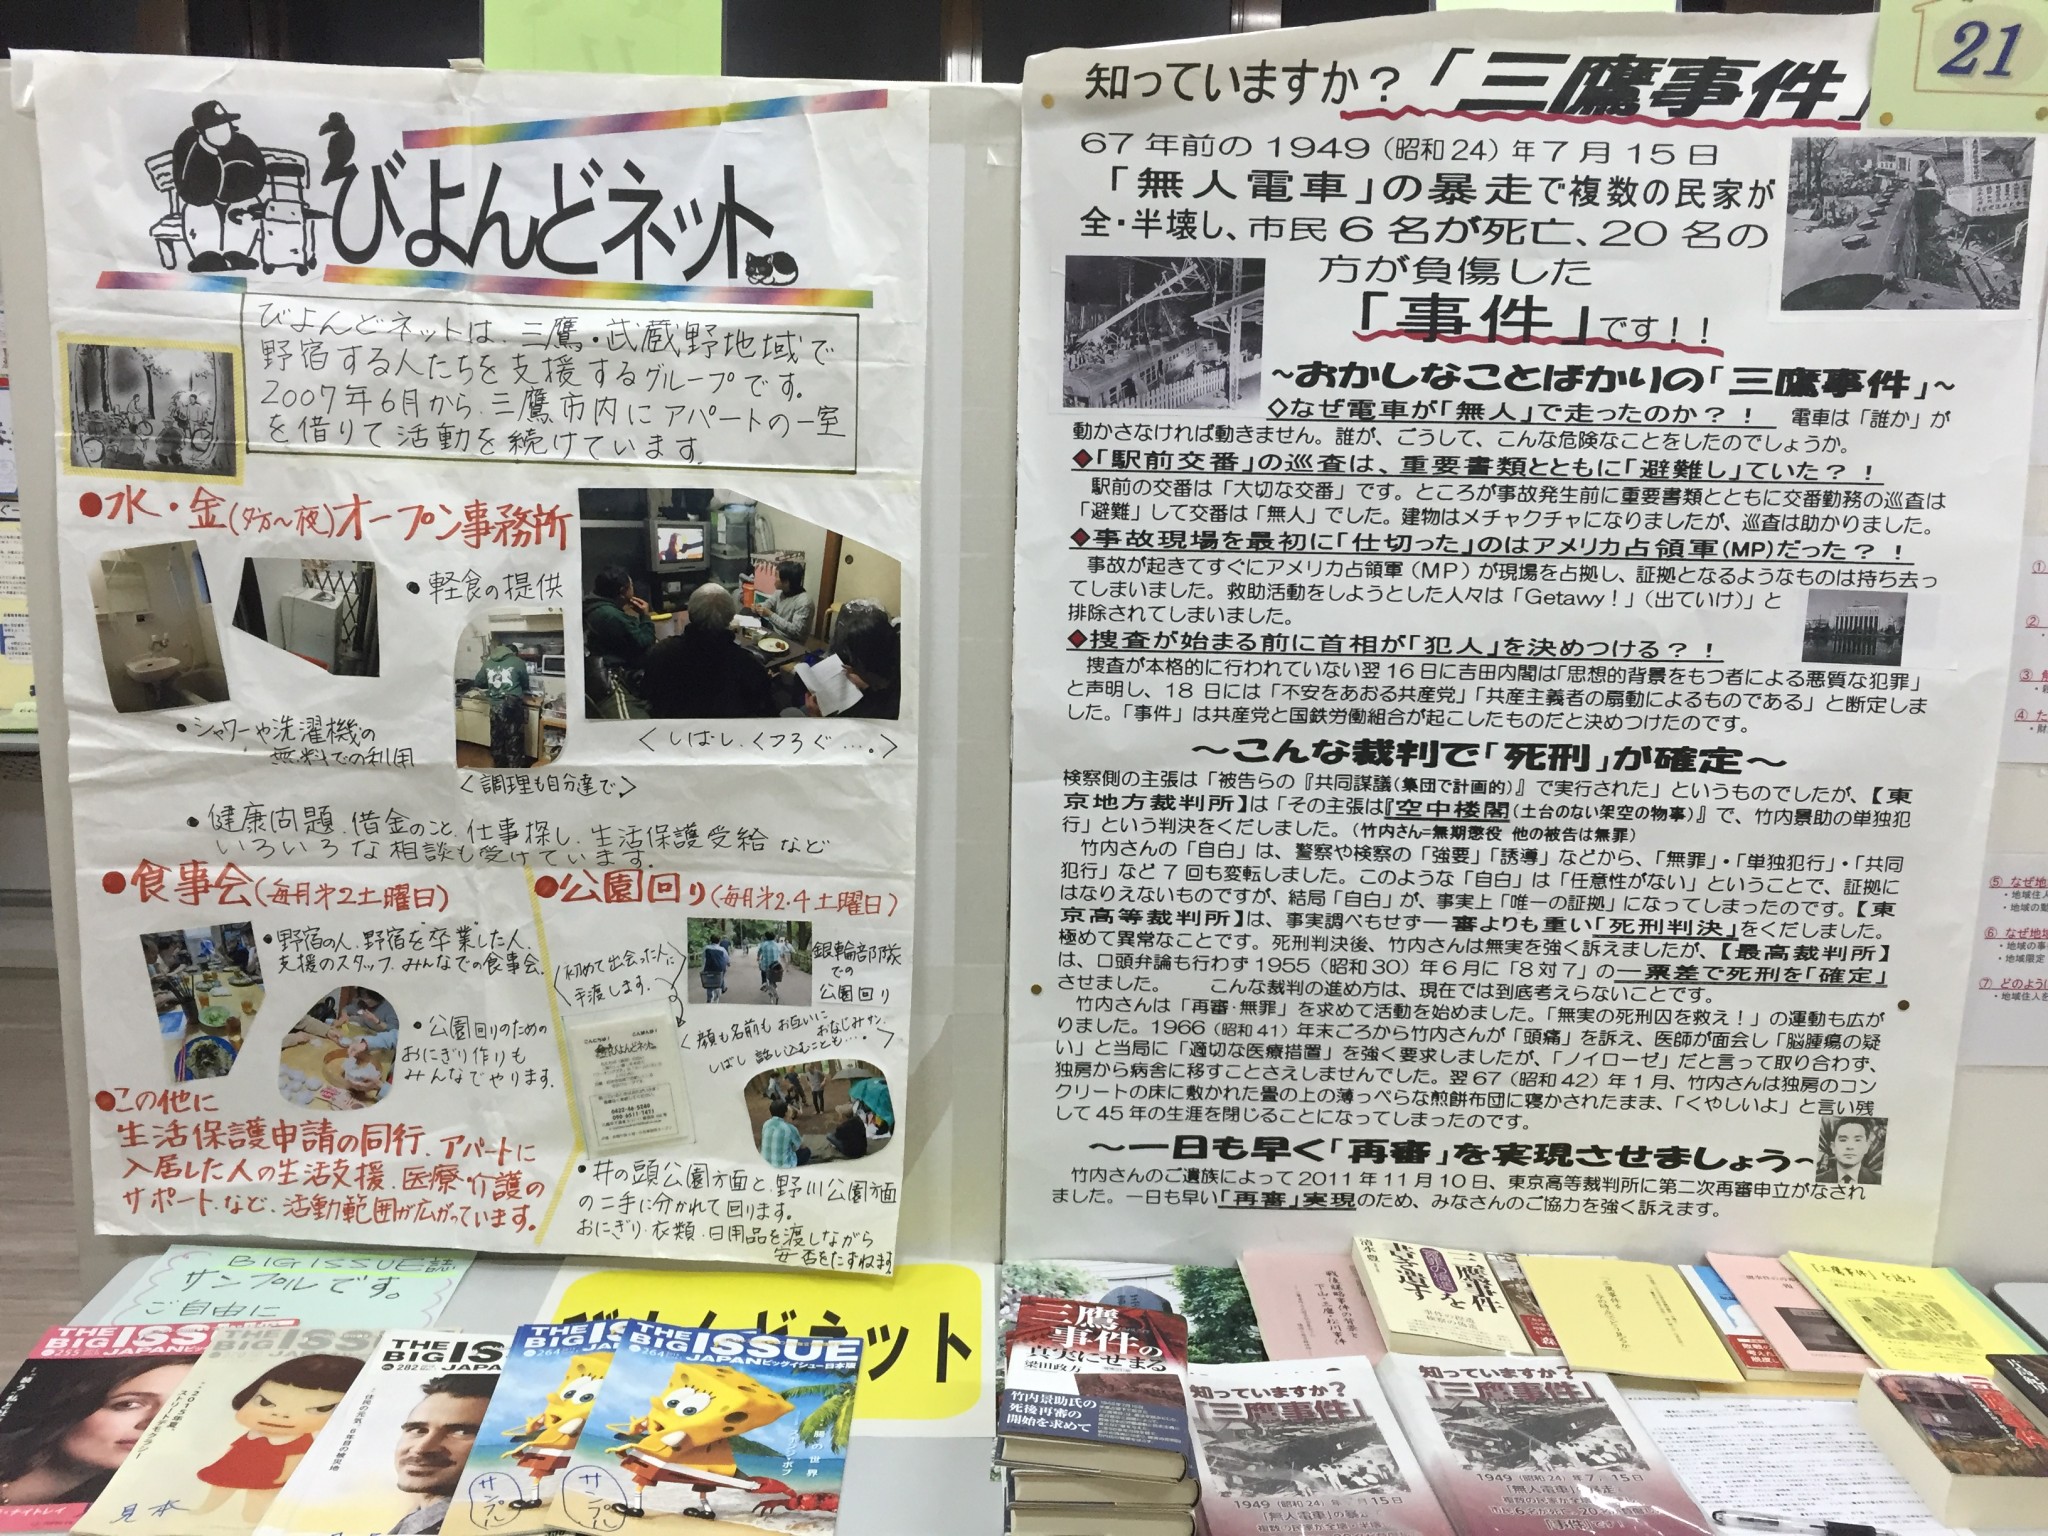 びよんどネット
びよんどネットは、三鷹・武蔵野地域で
野宿する人たちを支援するグループです。
2007年6月から、三鷹市内にアパートの一室
を借りて活動を続けています。
●水・金(夕方〜夜)オープン事務所
・軽食の提供
・シャワーや洗濯機の
無料での利用
<調理も自分達で>
<しばし、くつろぐ….>
・健康問題、借金のこと、仕事探し、生活保護受給など
いろいろな相談も受けています。
●食事会(毎月第2土曜日)
・野宿の人、野宿を卒業した人、
支援のスタッフ、みんなでの食事会。
・公園回りのための
おにぎり作りも
みんなでやります。
●この他に
生活保護申請の同行、アパートに
入居した人の生活支援、医療・介護の
サポート、など、活動範囲が広がっています。
●公園回り(毎月第2.4土曜日)
初めて出会った人に
手渡します。
銀輪部隊
での
公園回り
びよんどネット
0422-46-5260
顔も名前もお互いにおなじみサン。
しばし話し込むことも….
・井の頭公園方面と、野川公園方面
の二手に分かれて回ります。
おにぎり、衣類、日用品を渡しながら
安否をたずねます
21
知っていますか?「三鷹事件」
67年前の1949(昭和24)年7月15日
「無人電車」の暴走で複数の民家が
全・半壊し、市民6名が死亡、20名の
方が負傷した
「事件」です!!
~おかしなことばかりの「三鷹事件」~
◇なぜ電車が「無人」で走ったのか?! 電車は「誰か」が
動かさなければ動きません。誰が、こうして、こんな危険なことをしたのでしょうか。
◆「駅前交番」の巡査は、重要書類とともに「避難し」ていた?!
駅前の交番は「大切な交番」です。ところが事故発生前に重要書類とともに交番勤務の巡査は
「避難」して交番は「無人」でした。建物はメチャクチャになりましたが、巡査は助かりました。
◆事故現場を最初に「仕切った」のはアメリカ占領軍(MP)だった?!
事故が起きてすぐにアメリカ占領軍(MP)が現場を占拠し、証拠となるようなものは持ち去っ
てしまいました。救助活動をしようとした人々は「Getawy!」(出ていけ)」と
排除されてしまいました。
◆捜査が始まる前に首相が「犯人」を決めつける?!
捜査が本格的に行われていない翌16日に吉田内閣は「思想的背景をもつ者による悪質な犯罪」
と声明し、18日には「不安をあおる共産党」「共産主義者の扇動によるものである」と断定しま
した。「事件」は共産党と国鉄労働組合が起こしたものだと決めつけたのです。
~こんな裁判で「死刑」が確定~
検察側の主張は「被告らの『共同謀議(集団で計画的)』で実行された」というものでしたが、【東
京地方裁判所】は「その主張は『空中楼閣(土台のない架空の物事)』で、竹内景助の単独犯
行」という判決をくだしました。(竹内さん=無期懲役 他の被告は無罪)
竹内さんの「自白」は、警察や検察の「強要」「誘導」などから、「無罪」・「単独犯行」・「共同
犯行」など7回も変転しました。このような「自白」は「任意性がない」ということで、証拠に
はなりえないものですが、結局「自白」が、事実上「唯一の証拠」になってしまったのです。【東
京高等裁判所】は、事実調べもせず一審よりも重い「死刑判決」をくだしました。
極めて異常なことです。死刑判決後、竹内さんは無実を強く訴えましたが、【最高裁判所】
は、口頭弁論も行わず1955(昭和30)年6月に「8対7」の一票差で死刑を「確定」
させました。 こんな裁判の進め方は、現在では到底考えらないことです。
竹内さんは「再審・無罪」を求めて活動を始めました。「無実の死刑囚を救え!」の運動も広が
りました。1966(昭和41)年末ごろから竹内さんが「頭痛」を訴え、医師が面会し「脳腫瘍の疑
い」と当局に「適切な医療措置」を強く要求しましたが、「ノイローゼ」だと言って取り合わず、
独房から病舎に移すことさえしませんでした。翌67(昭和42)年1月、竹内さんは独房のコン
クリートの床に敷かれた畳の上の薄っぺらな煎餅布団に寝かされたまま、「くやしいよ」と言い残
して45年の生涯を閉じることになってしまったのです。
~一日も早く「再審」を実現させましょう~
竹内さんのご遺族によって2011年11月10日、東京高等裁判所に第二次再審申立がなされ
ました。一日も早い「再審」実現のため、みなさんのご協力を強く訴えます。
BIG ISSUE誌
サンプルです。
ご自由に
びよんどネット
THE BIG ISSUE JAPAN
255
見本
THE BIG ISSUE JAPAN
282
THE BIG ISSUE JAPAN
264
サンプル
THE BIG ISSUE JAPAN ビッグイシュー日本版
264
サンプル
三鷹
事件の
真実にせまる
梁田政方
竹内景助氏の
死後再審の
開始を求めて
知っていますか?
「三鷹事件」
1949(昭和24)年7月15日
「無人電車」の暴
知っていますか?
「三鷹事件」
1949(昭和24)年7月15日
「無人電車」の暴走で
「事件」です!
「三鷹事件」を語る